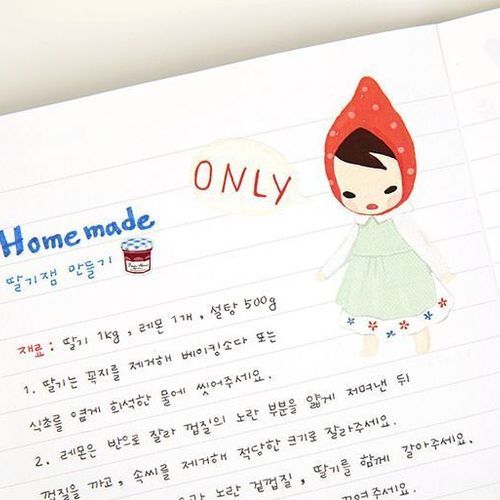 ONLY
Homemade
딸기잼 만들기
재료 : 딸기 1kg , 레몬 1개 , 설탕 500g
1. 딸기는 꼭지를 제거해 베이킹소다 또는
식초를 옅게 희석한 물에 씻어주세요.
2. 레몬은 반으로 잘라 껍질의 노란 부분을 얇게 저며낸 뒤
껍질을 까고, 속씨를 제거해 적당한 크기로 잘라주세요.
노란 겉껍질, 딸기를 함께 갈아주세요.